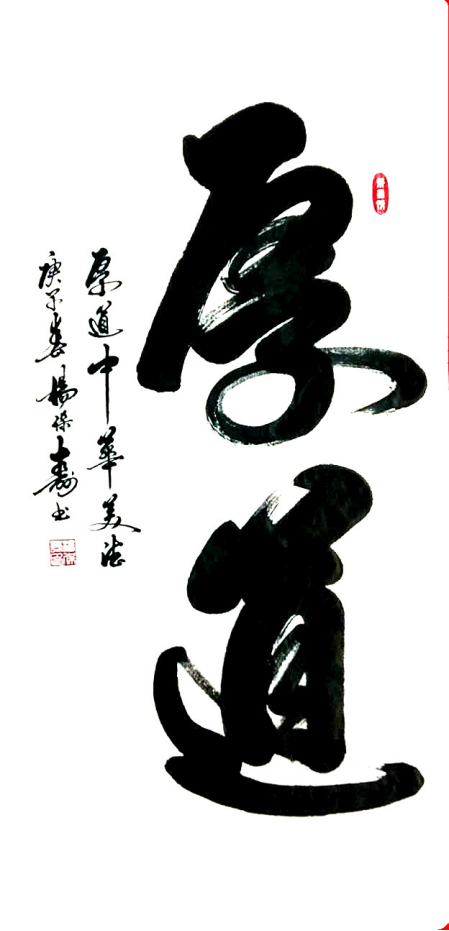 厚道
厚道中華美德
庚子春楊保壽书